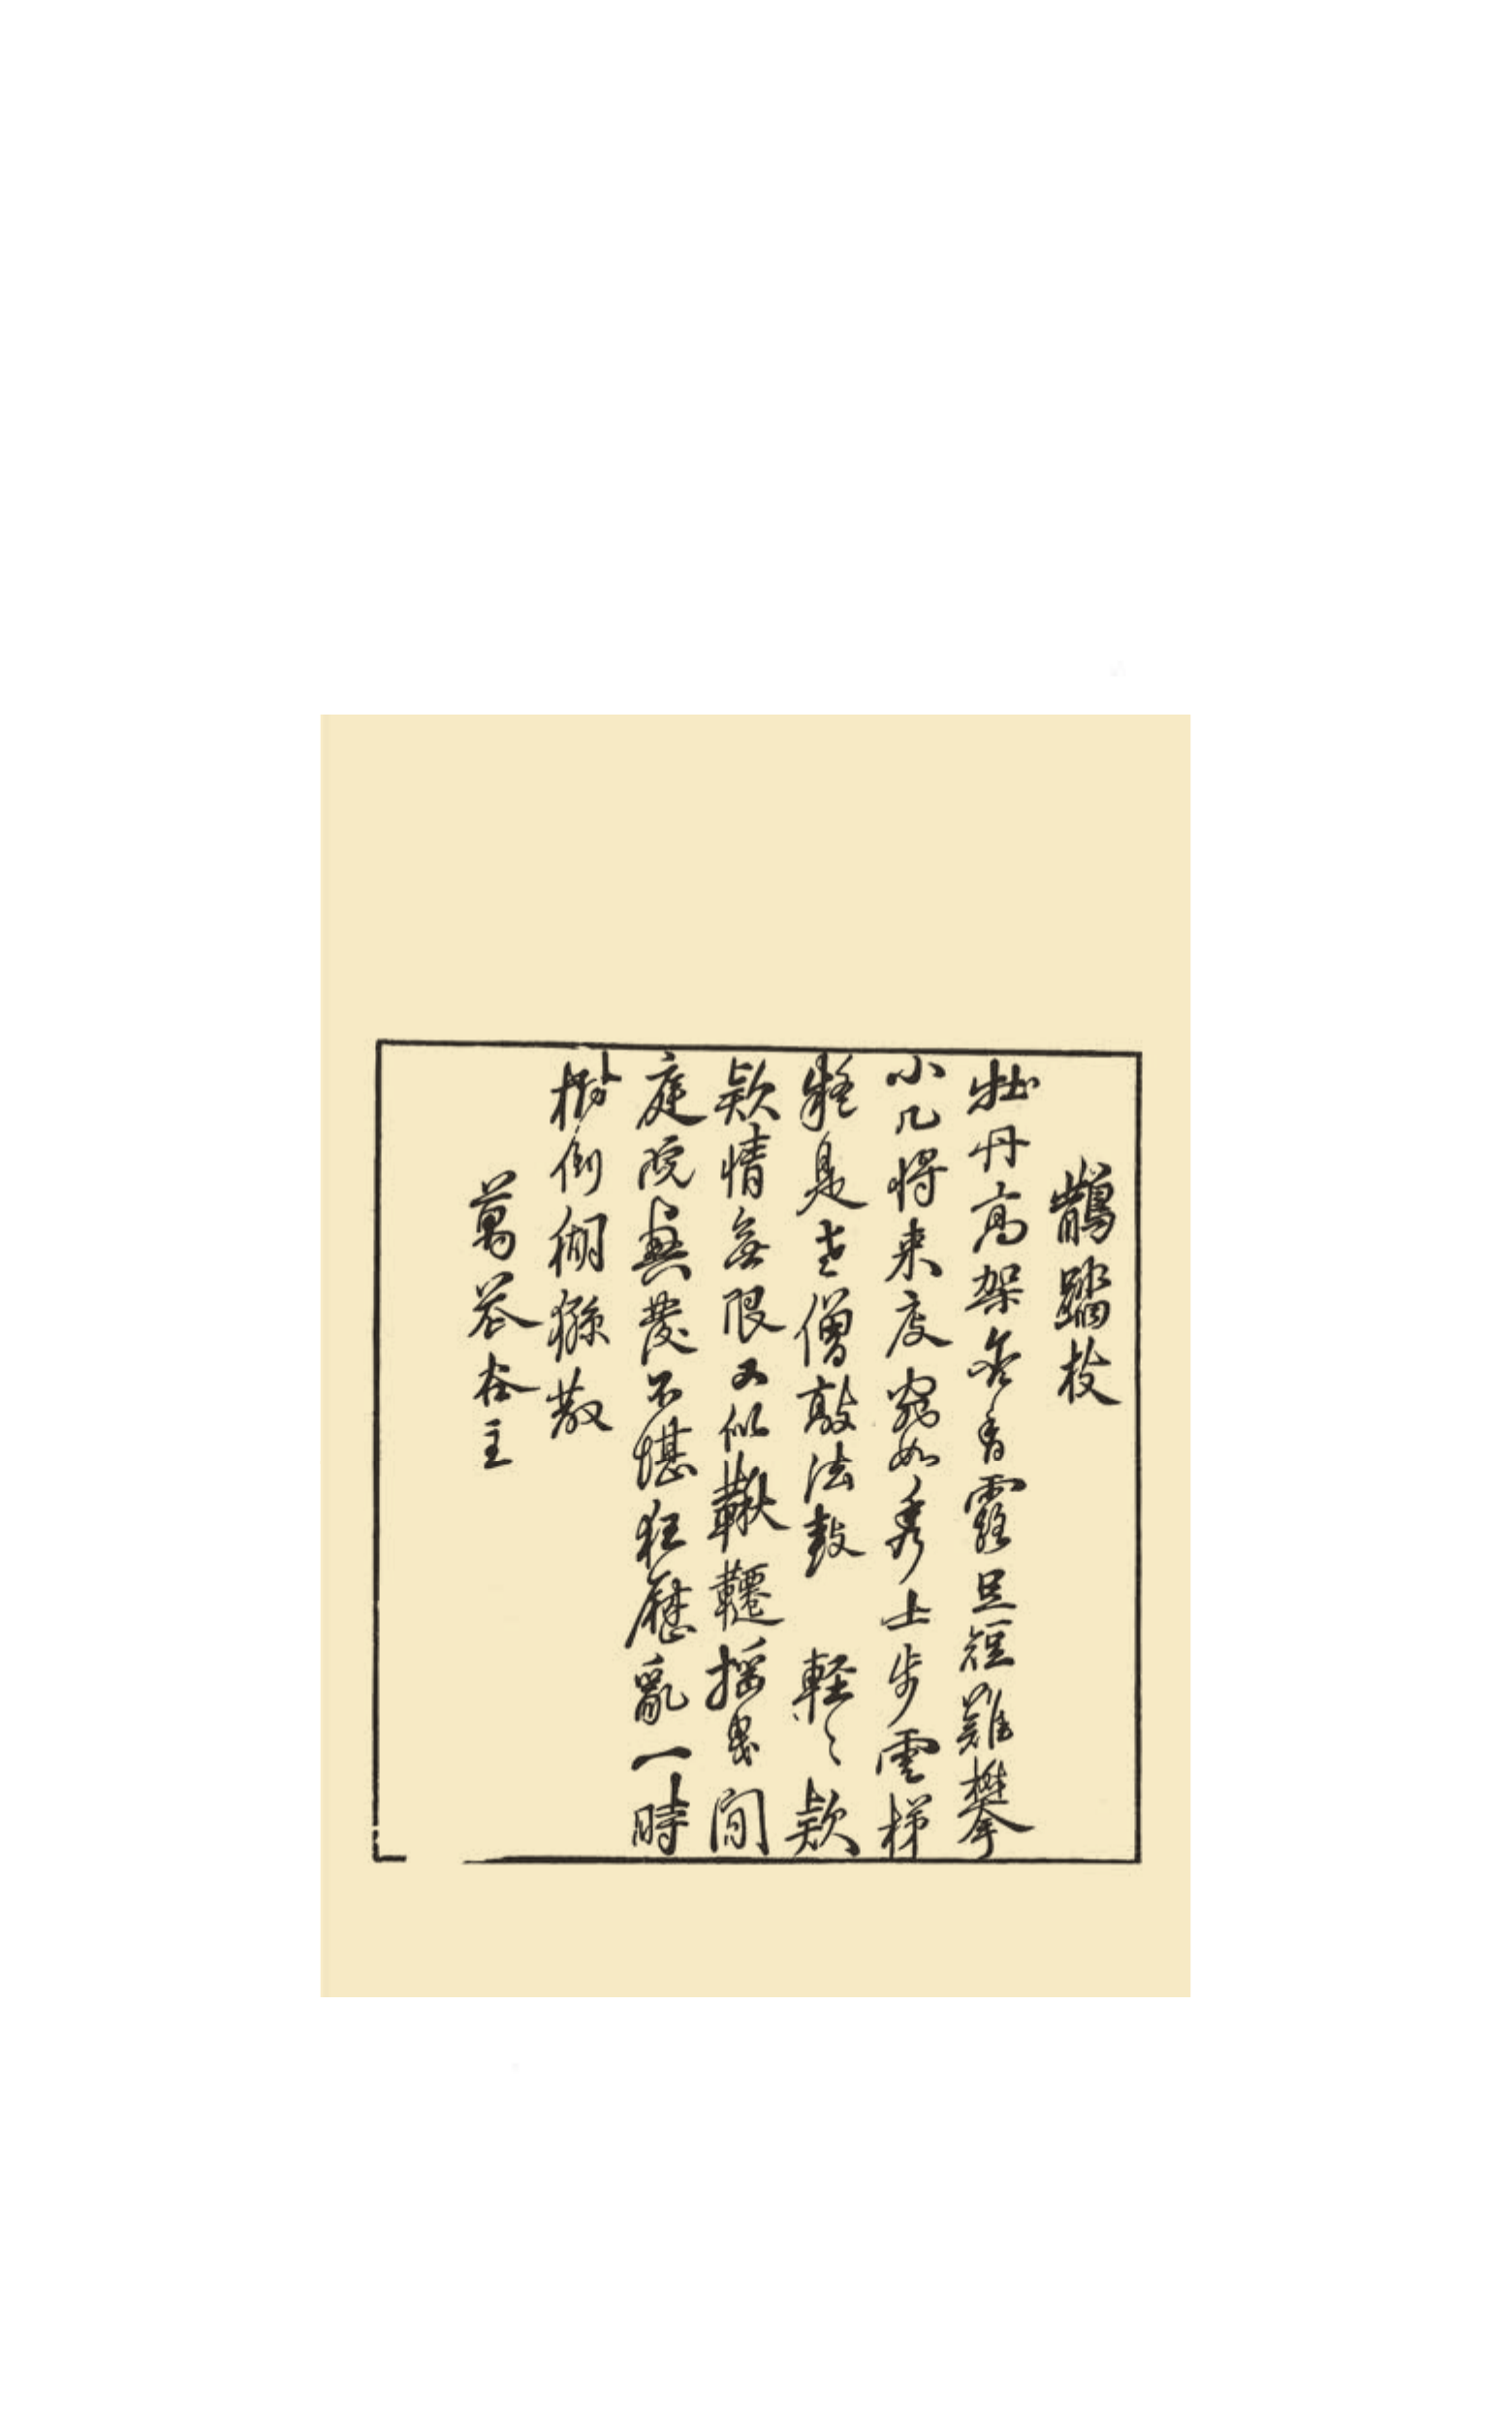 鵲踏枝
牡丹高架含香露足短難攀
小几將來度宛如秀士步雲梯
疑是老僧敲法鼓　輕〻款
款情無限又似鞦韆搖曳閒
庭院無處不堪狂歷亂一時
樹倒猢猻散
萬花谷主